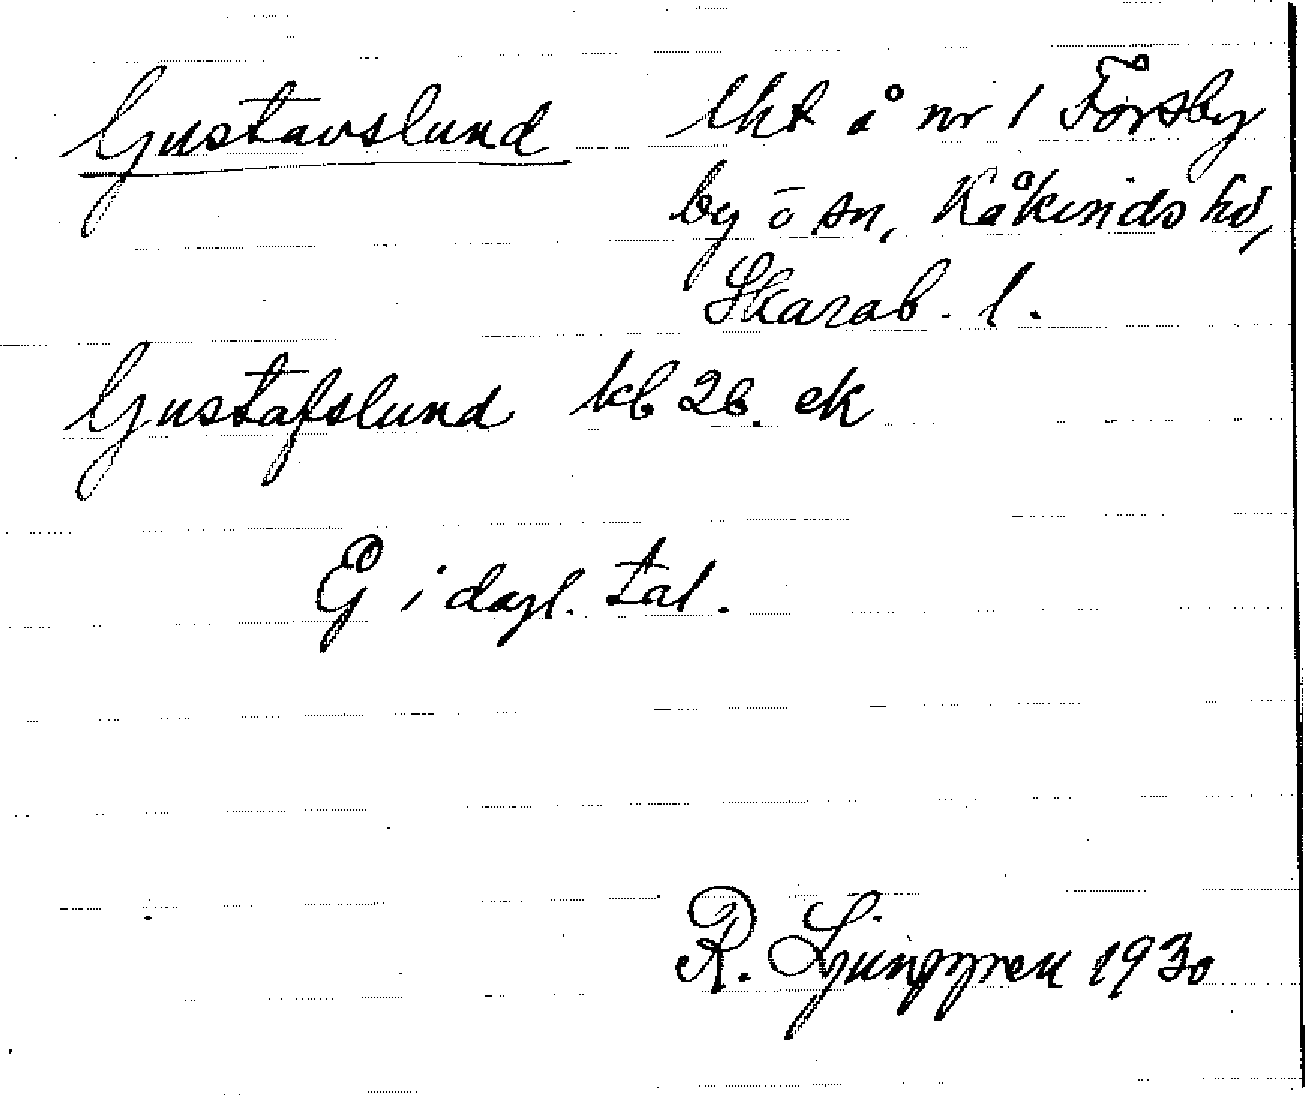 Gustavslund lht å nr 1 Forsby
by o sn, Kåkinds hd,
Skarab. l.
Gustafslund kb 26. ek
Ej i dagl. tal.
R. Ljunggren 1930